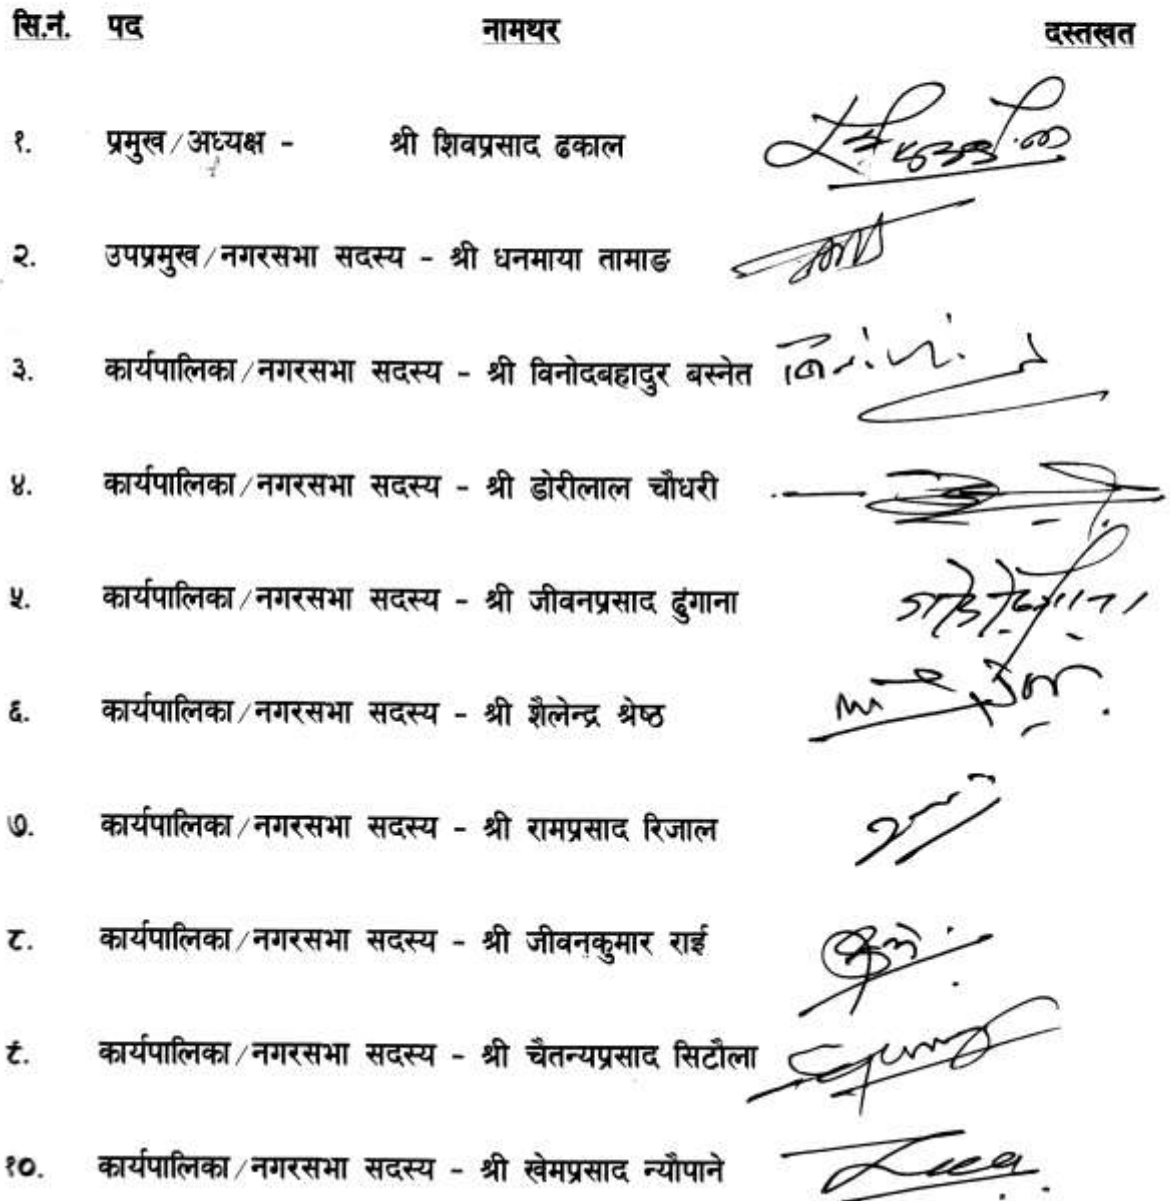 सि.नं. पद नामथर दस्तखत
१. प्रमुख/अध्यक्ष - श्री शिवप्रसाद ढकाल
२. उपप्रमुख/नगरसभा सदस्य - श्री धनमाया तामाङ
३. कार्यपालिका/नगरसभा सदस्य - श्री विनोदबहादुर बस्नेत
४. कार्यपालिका/नगरसभा सदस्य - श्री डोरीलाल चौधरी
५. कार्यपालिका/नगरसभा सदस्य - श्री जीवनप्रसाद ढुंगाना
६. कार्यपालिका/नगरसभा सदस्य - श्री शैलेन्द्र श्रेष्ठ
७. कार्यपालिका/नगरसभा सदस्य - श्री रामप्रसाद रिजाल
८. कार्यपालिका/नगरसभा सदस्य - श्री जीवनकुमार राई
९. कार्यपालिका/नगरसभा सदस्य - श्री चैतन्यप्रसाद सिटौला
१०. कार्यपालिका/नगरसभा सदस्य - श्री खेमप्रसाद न्यौपाने